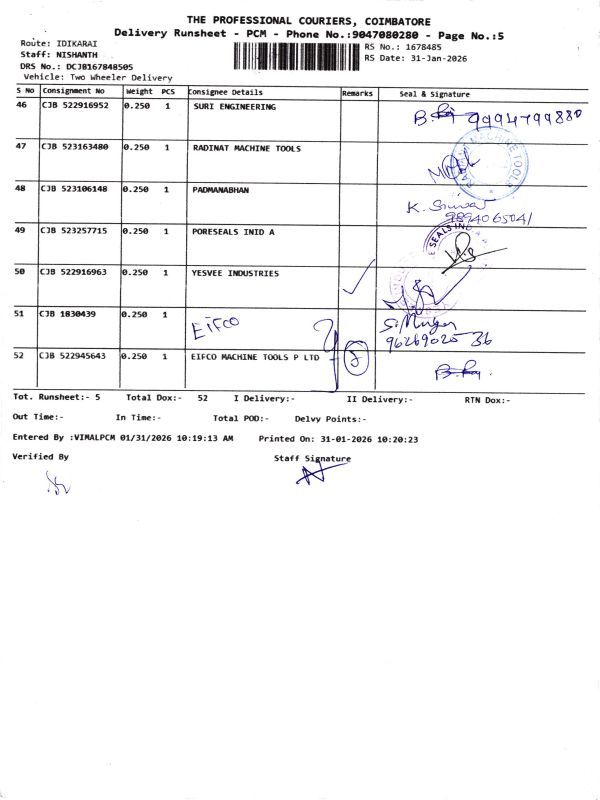 THE PROFESSIONAL COURIERS, COIMBATORE
Delivery Runsheet - PCM - Phone No.:9047080280 - Page No.:5
Route: IDIKARAI
RS No.: 1678485
Staff: NISHANTH
RS Date: 31-Jan-2026
DRS No.: DCJB167848505
Vehicle: Two Wheeler Delivery
S No Consignment No Weight PCS Consignee Details Remarks Seal & Signature
46 CJB 522916952 0.250 1 SURI ENGINEERING
9994799880
47 CJB 523163480 0.250 1 RADINAT MACHINE TOOLS
MACHINE TOOLS
48 CJB 523106148 0.250 1 PADMANABHAN
K.
9894065041
49 CJB 523257715 0.250 1 PORESEALS INID A
SEALS IN
50 CJB 522916963 0.250 1 YESVEE INDUSTRIES
51 CJB 1830439 0.250 1 EIFCO
S. Murgan
9626902036
52 CJB 522945643 0.250 1 EIFCO MACHINE TOOLS P LTD
Tot. Runsheet:- 5 Total Dox:- 52 I Delivery:- II Delivery:- RTN Dox:-
Out Time:- In Time:- Total POD:- Delvy Points:-
Entered By :VIMALPCM 01/31/2026 10:19:13 AM Printed On: 31-01-2026 10:20:23
Verified By Staff Signature